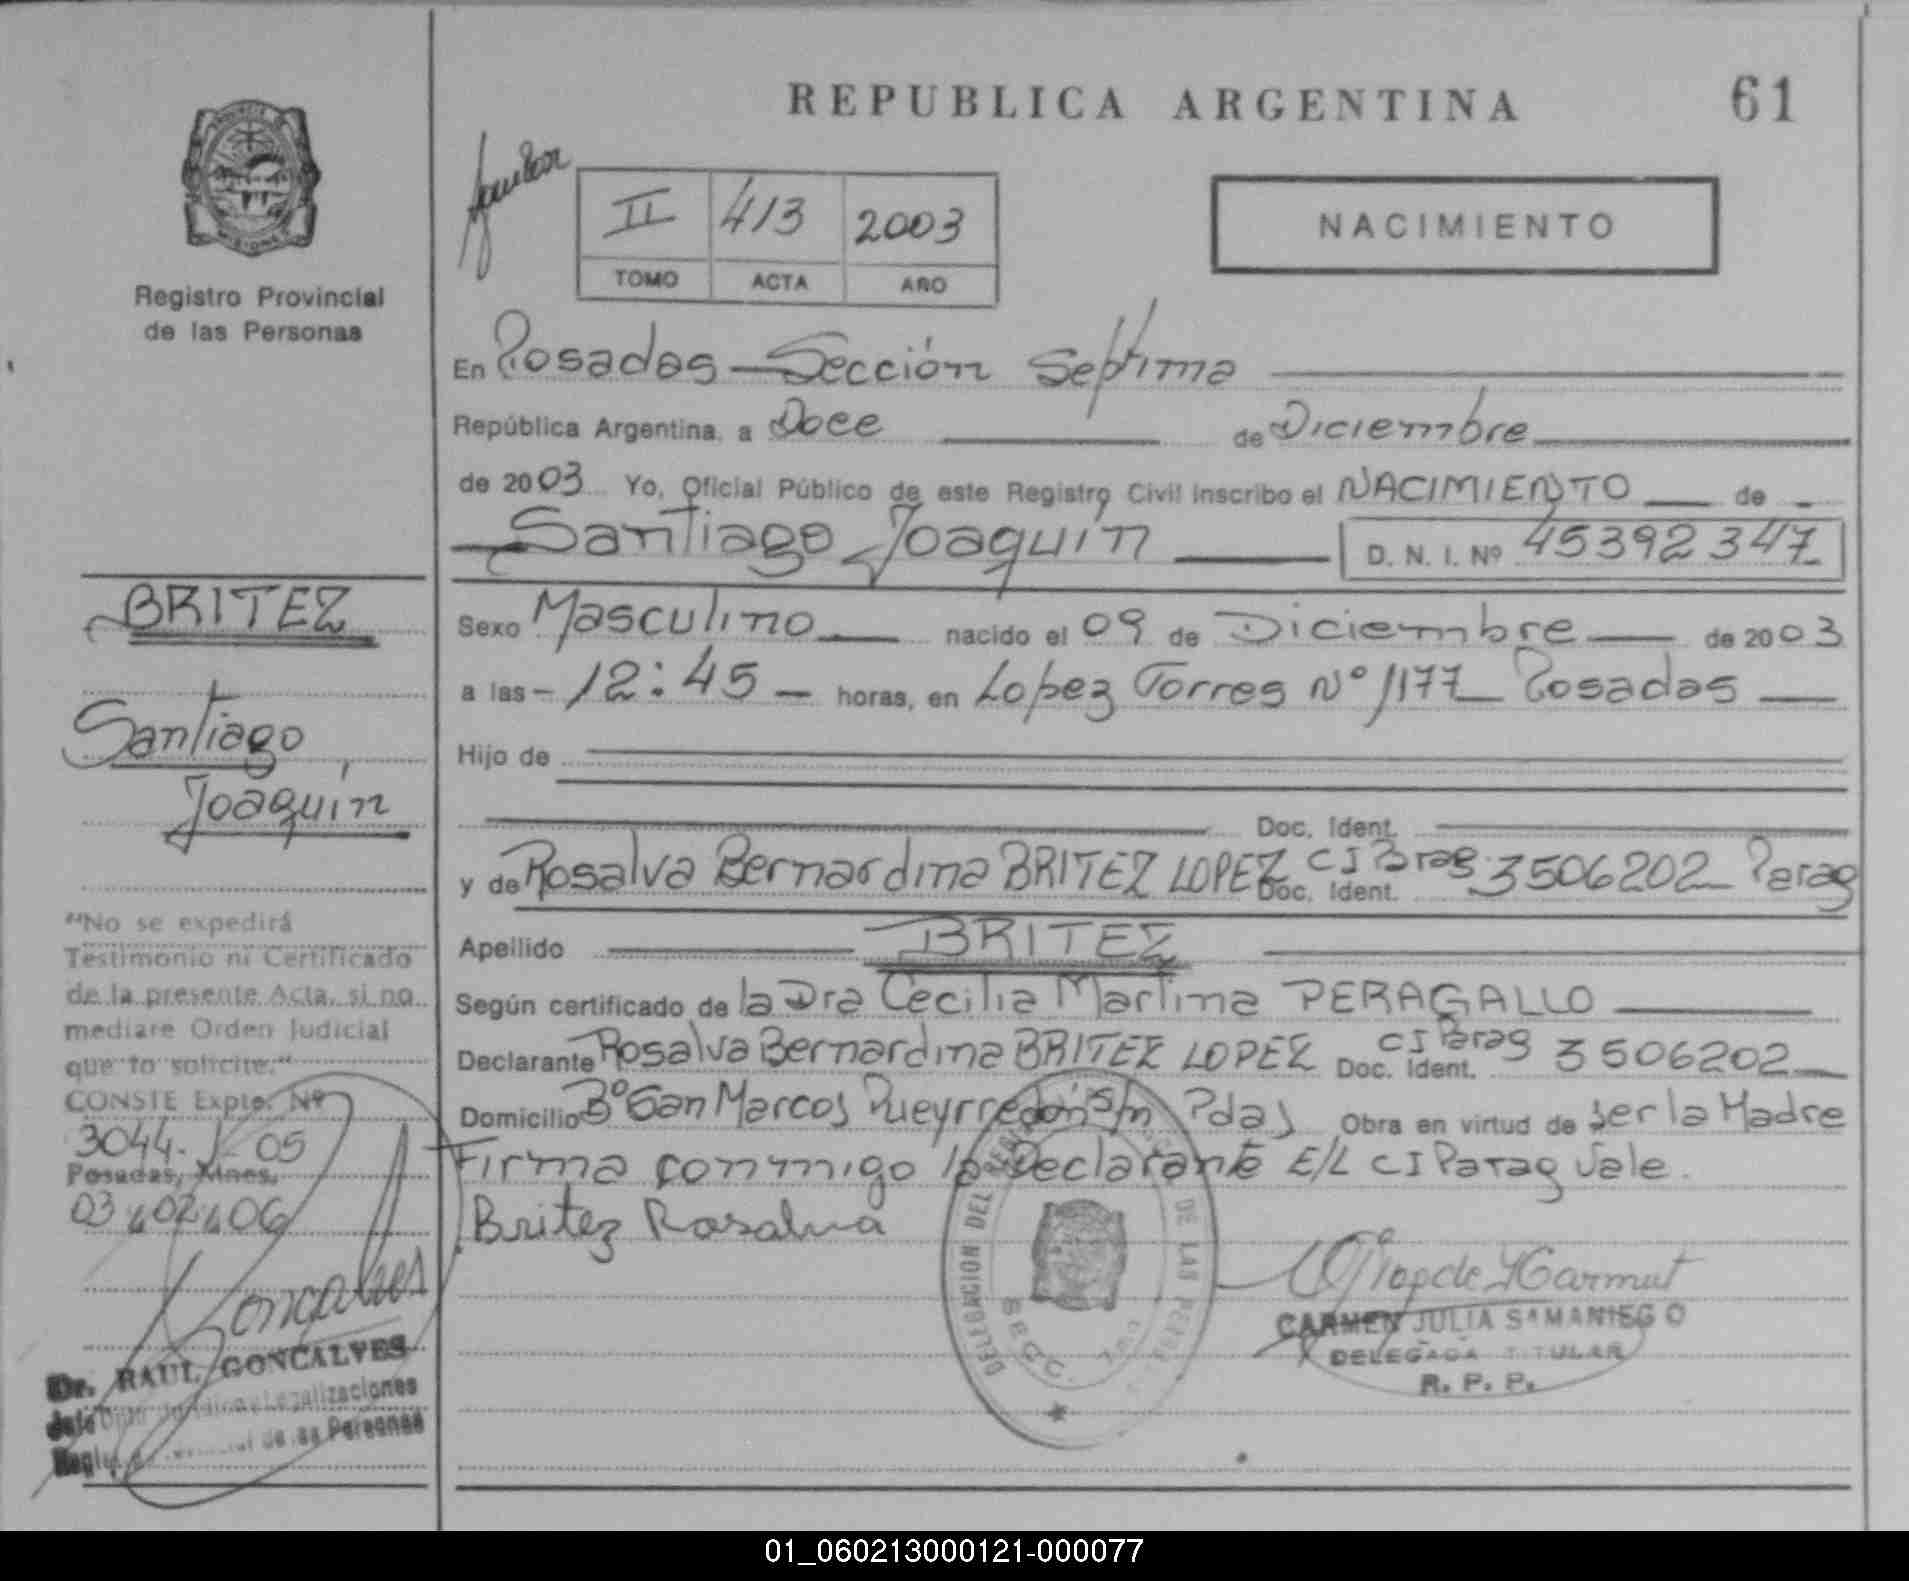 REPUBLICA ARGENTINA
61
II 413 2003
TOMO ACTA AÑO
NACIMIENTO
Registro Provincial
de las Personas
En Posadas - Sección Septima
República Argentina, a Doce de Diciembre
de 2003 Yo, Oficial Público de este Registro Civil inscribo el NACIMIENTO de
Santiago Joaquín D. N. I. Nº 45392347
Sexo Masculino nacido el 09 de Diciembre de 2003
a las - 12:45 - horas, en Lopez Torres Nº 1177 Posadas
Hijo de
Doc. Ident.
y de Rosalva Bernardina BRITEZ LOPEZ Doc. Ident. CI Parag 3506202 Parag
Apellido BRITEZ
Según certificado de la Dra Cecilia Martina PERAGALLO
Declarante Rosalva Bernardina BRITEZ LOPEZ Doc. Ident. CI Parag 3506202
Domicilio Bº San Marcos Pueyrredón S/n Pdas Obra en virtud de ser la Madre
Firma conmigo la Declarante E/L CI Parag Vale.
Britez Rosalva
CARMEN JULIA SAMANIEGO
DELEGADA TITULAR
R. P. P.
BRITEZ
Santiago
Joaquín
"No se expedirá
Testimonio ni Certificado
de la presente Acta, si no
mediare Orden Judicial
que lo solicite."
CONSTE Expte. Nº
3044. / 05
Posadas, Mnes,
03 02 06
Goncalves
Dr. RAUL GONCALVES
Legalizaciones
de las Personas
DELEGACION DEL DE LAS
SECC.
01_060213000121-000077